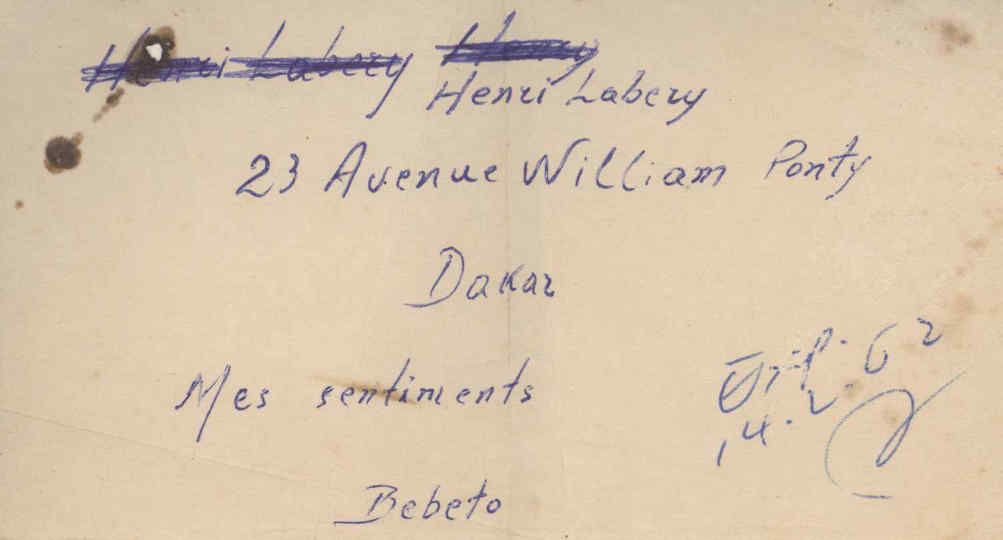 Henri Labery Henry
Henri Labery
23 Avenue William Ponty
Dakar
Mes sentiments
Bebeto
62
14.2.